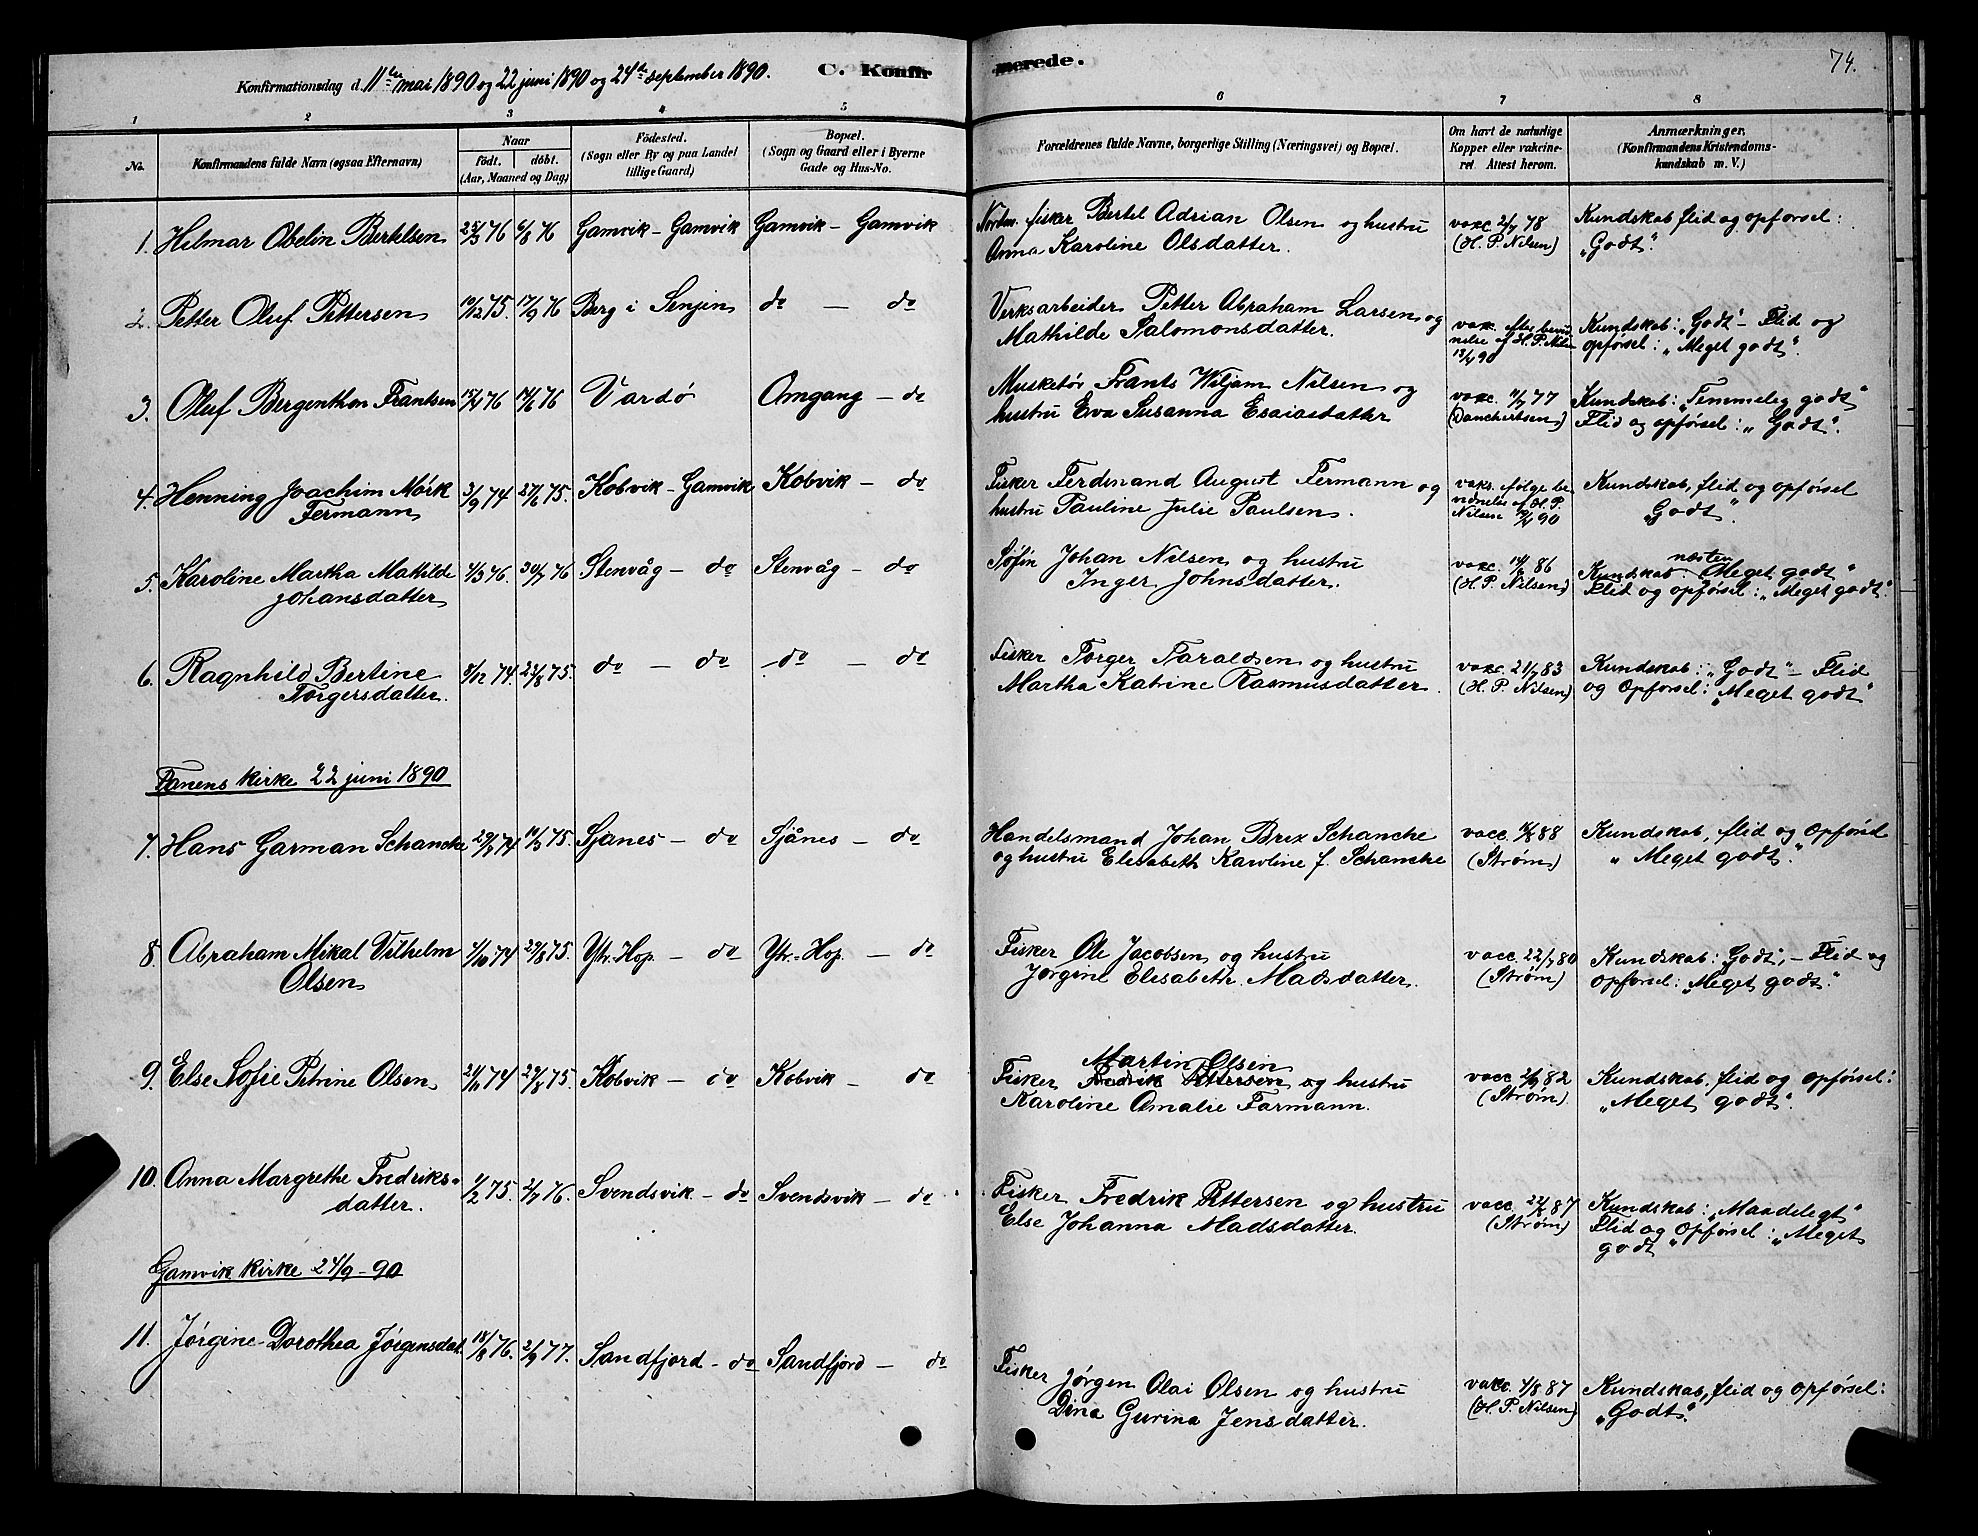 Konfirmationsdag d. 11te mai 1890 og 22 juni 1890 og 24de september 1890. C. Konfirmerede. 74.
1 2 3 4 5 6 7 8
No. Konfirmandens fulde Navn (ogsaa Efternavn) Naar födt. döbt. (Aar, Maaned og Dag) Födested. (Sogn eller By og paa Landet tillige Gaard) Bopæl. (Sogn og Gaard eller i Byerne Gade og Hus-No. Forældrenes fulde Navne, borgerlige Stilling (Næringsvei) og Bopæl. Om havt de naturlige Kopper eller vakcineret Attest herom. Anmærkninger. (Konfirmandens Kristendomskundskab m. V.)
1. Hilmar Obelin Bertelsen 25/3 76 6/8 76 Gamvik - Gamvik Gamvik - Gamvik fisker Bertel Adrian Olsen og hustru vacc. 2/7 78 Kundskab flid og opførsel:
Anna Karoline Olsdatter. (H. P. Nilsen) "Godt".
2. Petter Oluf Pettersen 19/12 75. 17/9 76 Berg i Senjen do - do Verksarbeider Petter Abraham Larsen og vacc. Kundskab: "Godt" - Flid og
Mathilde Salomonsdatter. af H. P. 90 opførsel: "Meget godt".
3. Oluf Bergenthon Frantsen 15/4 76 14/6 76 Vardø Omgang - do Musketør Frants Wiljam Nilsen og vacc. 11/7 77 Kundskab: "Temmeleg godt"
hustru Eva Susanna Esaiasdatter (Danchertsen) Flid og opførsel: "Godt".
4. Henning Joachim Mörk 3/9 74 27/6 75. Kobvik - Gamvik Kobvik - do Fisker Ferdinand August Fermann og vaks. ifølge be Kundskab, flid og opførsel
Fermann hustru Pauline Julie Paulsen. vidnelse af H. P. Nilsen 90 "Godt".
5. Karoline Martha Mathilde 4/3 76. 30/7 76 Stenvåg - do Stenvåg - do Søfin Johan Nilsen og hustru vacc. 86 Kundskab: næsten "Meget godt"
Johansdatter Inger Johnsdatter. (H. P. Nilsen) Flid og opførsel: "Meget godt".
6. Ragnhild Bertine 8/12 74. 22/8 75. do - do do - do Fisker Torger Taraldsen og hustru vacc. 21/7 83 Kundskab: "Godt" - Flid
Torgersdatter. Martha Katrine Rasmusdatter. (H. P. Nilsen) og Opførsel: "Meget godt"
Tanens kirke 22 juni 1890
7. Hans Garman Schancke 29/7 74 11/3 75. Sjånes - do Sjånes - do Handelsmand Johan Brix Schancke vacc. 88 Kundskab, flid og opførsel
og hustru Elisabeth Karoline f. Schancke (Strøm) "Meget godt."
8. Abraham Mikal Vilhelm 4/10 74 29/8 75. Ytr. Hop. - do Ytr. Hop. - do Fisker Ole Jacobsen og hustru vacc. 22/7 80 Kundskab: "Godt", - Flid og
Olsen Jørgine Elisabeth Madsdatter. (Strøm) opførsel: "Meget godt."
9. Else Sofie Petrine Olsen 21/11 74 29/8 75. Kobvik - do Kobvik - do Martin Olsen
Fisker Fredrik Pettersen og hustru vacc. 2/9 82 Kundskab, flid og opførsel:
Karoline Amalie Farmann. (Strøm) "Meget godt".
10. Anna Margrethe Fredriks- 1/2 75. 2/7 76. Svendsvik - do Svendsvik - do Fisker Fredrik Pettersen og hustru vacc. 87 Kundskab: "Maadelegt"
datter. Else Johanna Madsdatter. (Strøm) Flid og Opførsel: "Meget
godt"
Gamvik kirke 24/9 - 90
11. Jørgine Dorothea Jørgensdat. 18/8 76. 2/9 77. Sandfjord - do Sandfjord - do Fisker Jørgen Olai Olsen og hustru vacc. 4/8 87 Kundskab, flid og opførsel:
Dina Gurina Jensdatter. (H. P. Nilsen) "Godt".